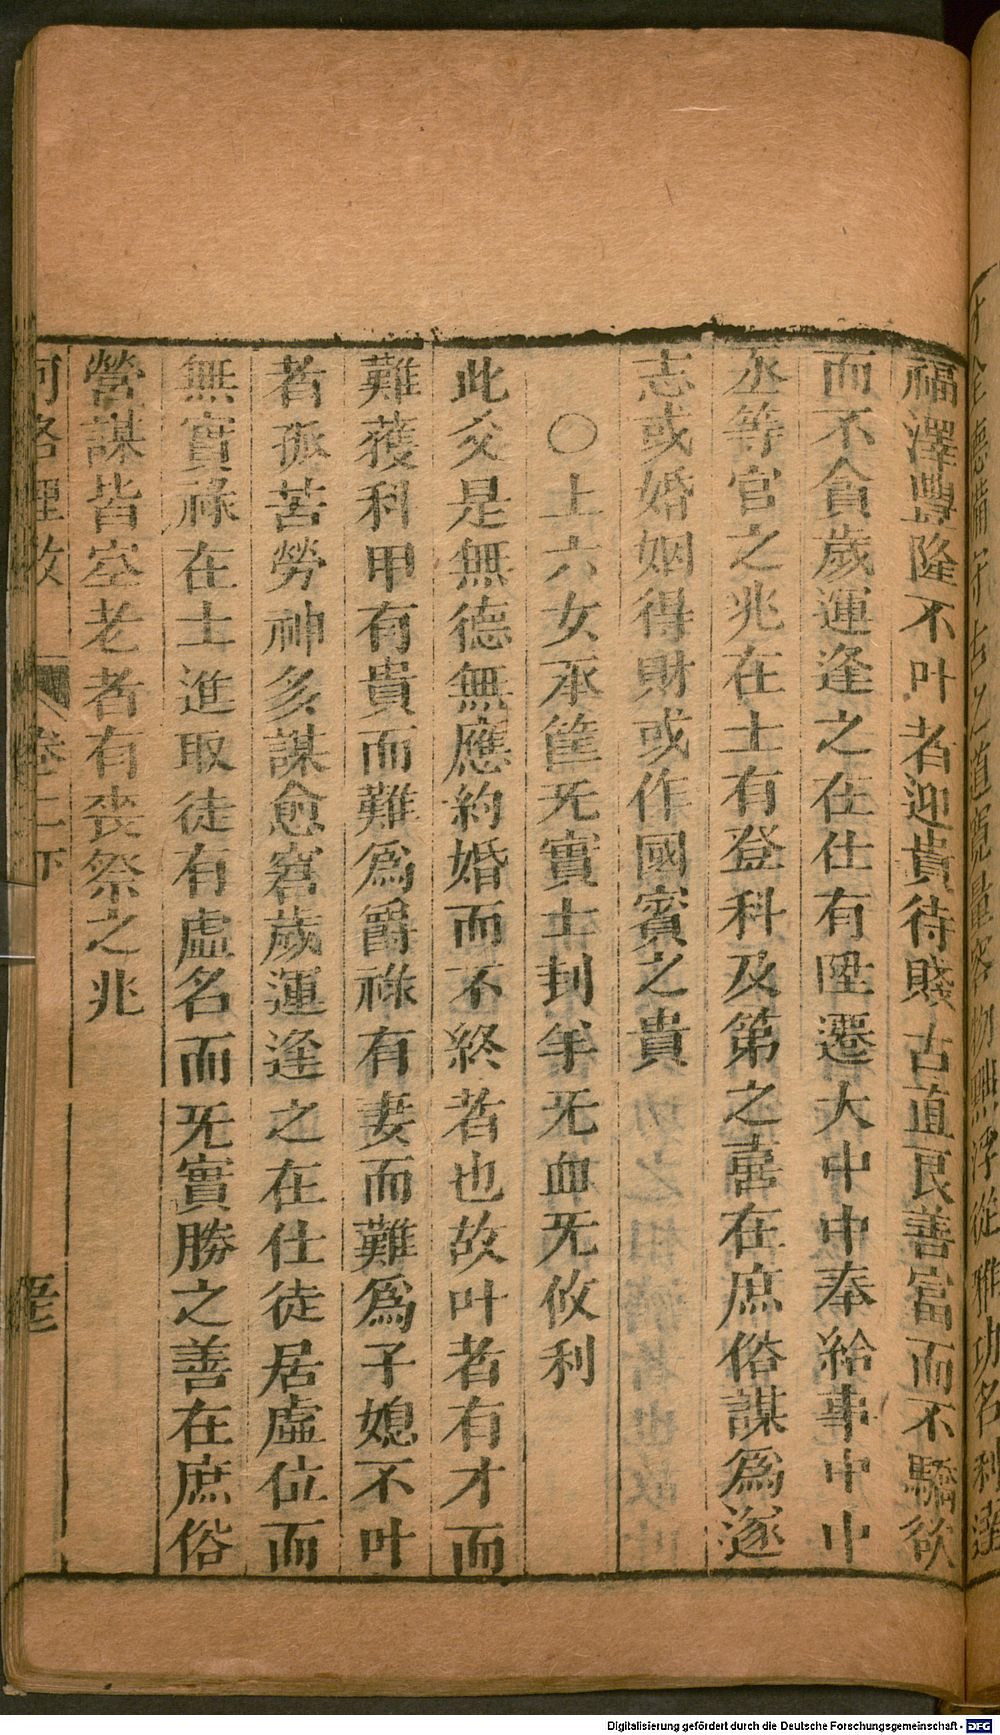 福澤豊隆不叶者迎貴待賤古直艮善富而不驕欲
而不貪歲運逢之在仕有陞遷大中中奉給事中中
丞等官之兆在士有登科及第之喜在庶俗謀爲遂
志或婚姻得財或作國賓之貴
〇上六女承筐旡實士刲羊旡血旡攸利
此爻是無德無應約婚而不終者也故叶者有才而
難獲科甲有貴而難爲爵祿有妻而難爲子媳不叶
者孤苦勞神多謀愈窘歲運逢之在仕徒居虛位而
無實祿在士進取徒有虛名而旡實勝之善在庶俗
營謀皆空老者有喪祭之兆
河洛理數 卷二下
Digitalisierung gefördert durch die Deutsche Forschungsgemeinschaft - DFG